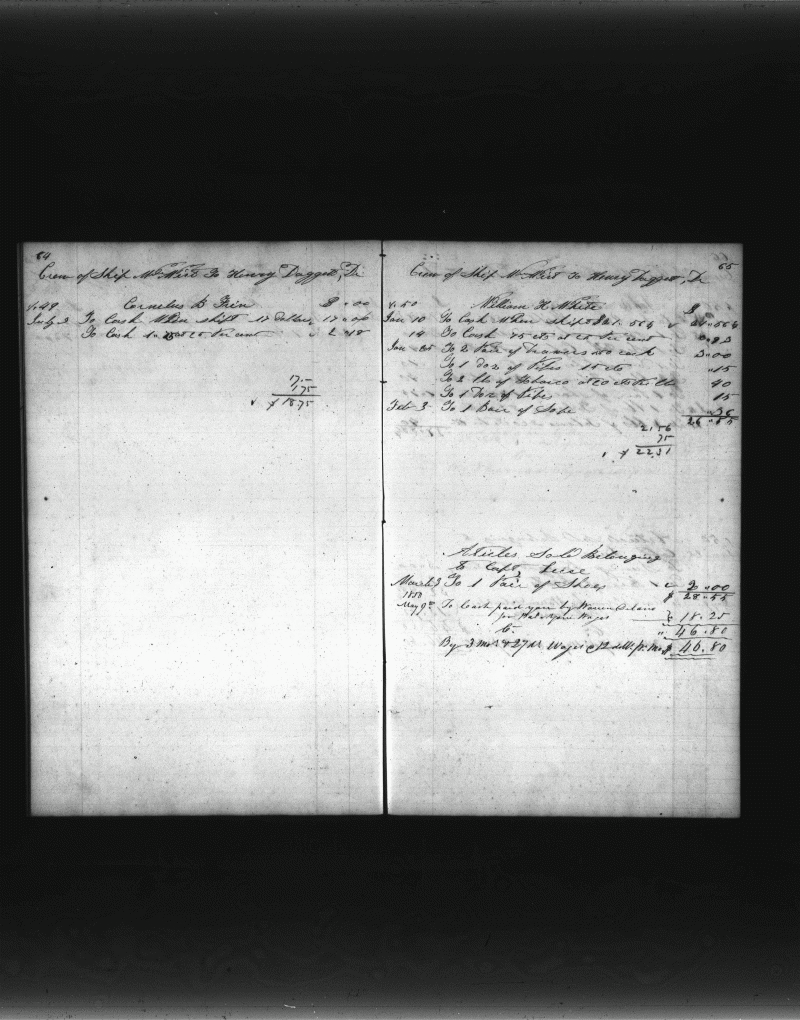 64
Crew of Ship Mt West To Henry Daggett, Dr
1849 Cornelus D $ " 00
July 2 To Cash When shipt 17 dollars 17 " 00
To Cash per cent 2 " 18
17.-
175
$ 1875
65
Crew of Ship Mt West To Henry Daggett, Dr
1850 William H. White $
Jan 10 To Cash When shipt
14 To Cash 75 cts at per cent
Jan To 2 Pair of Trousers cash 3 " 00
To 1 doz of Pipes 15 cts " 15
To 2 lbs of Tobacco at 20 cts the lb 40
To 1 Doz of Pipes 15
Feb 3 To 1 Bair of Sope
26 " 55
21.56
75
$ 22.31
Articles Sold Belonging
to Capt
March 3 To 1 Pair of Shoes 2 " 00
$ 28 " 55
1850
May 9th To Cash paid you by Warren Delano
for Wages 18.25
46.80
Cr.
By 3 Mos & 27 ds Wages @ 12 dolls pr. Mo $ 46.80